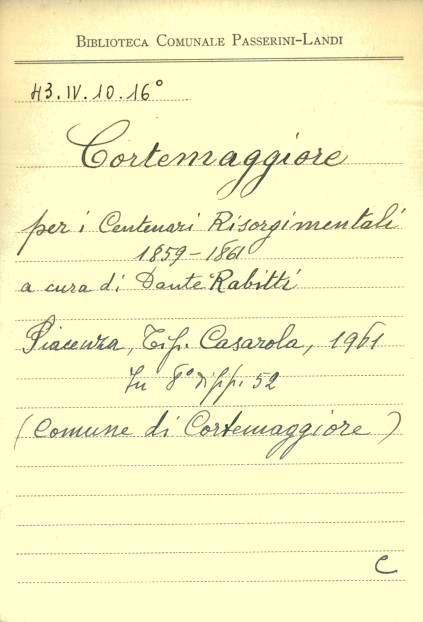 BIBLIOTECA COMUNALE PASSERINI-LANDI
43.IV.10.16°
Cortemaggiore
per i Centenari Risorgimentali
1859-1861
a cura di Dante Rabitti
Piacenza, Tip. Casarola, 1961
In 8° di pp. 52
(Comune di Cortemaggiore)
C